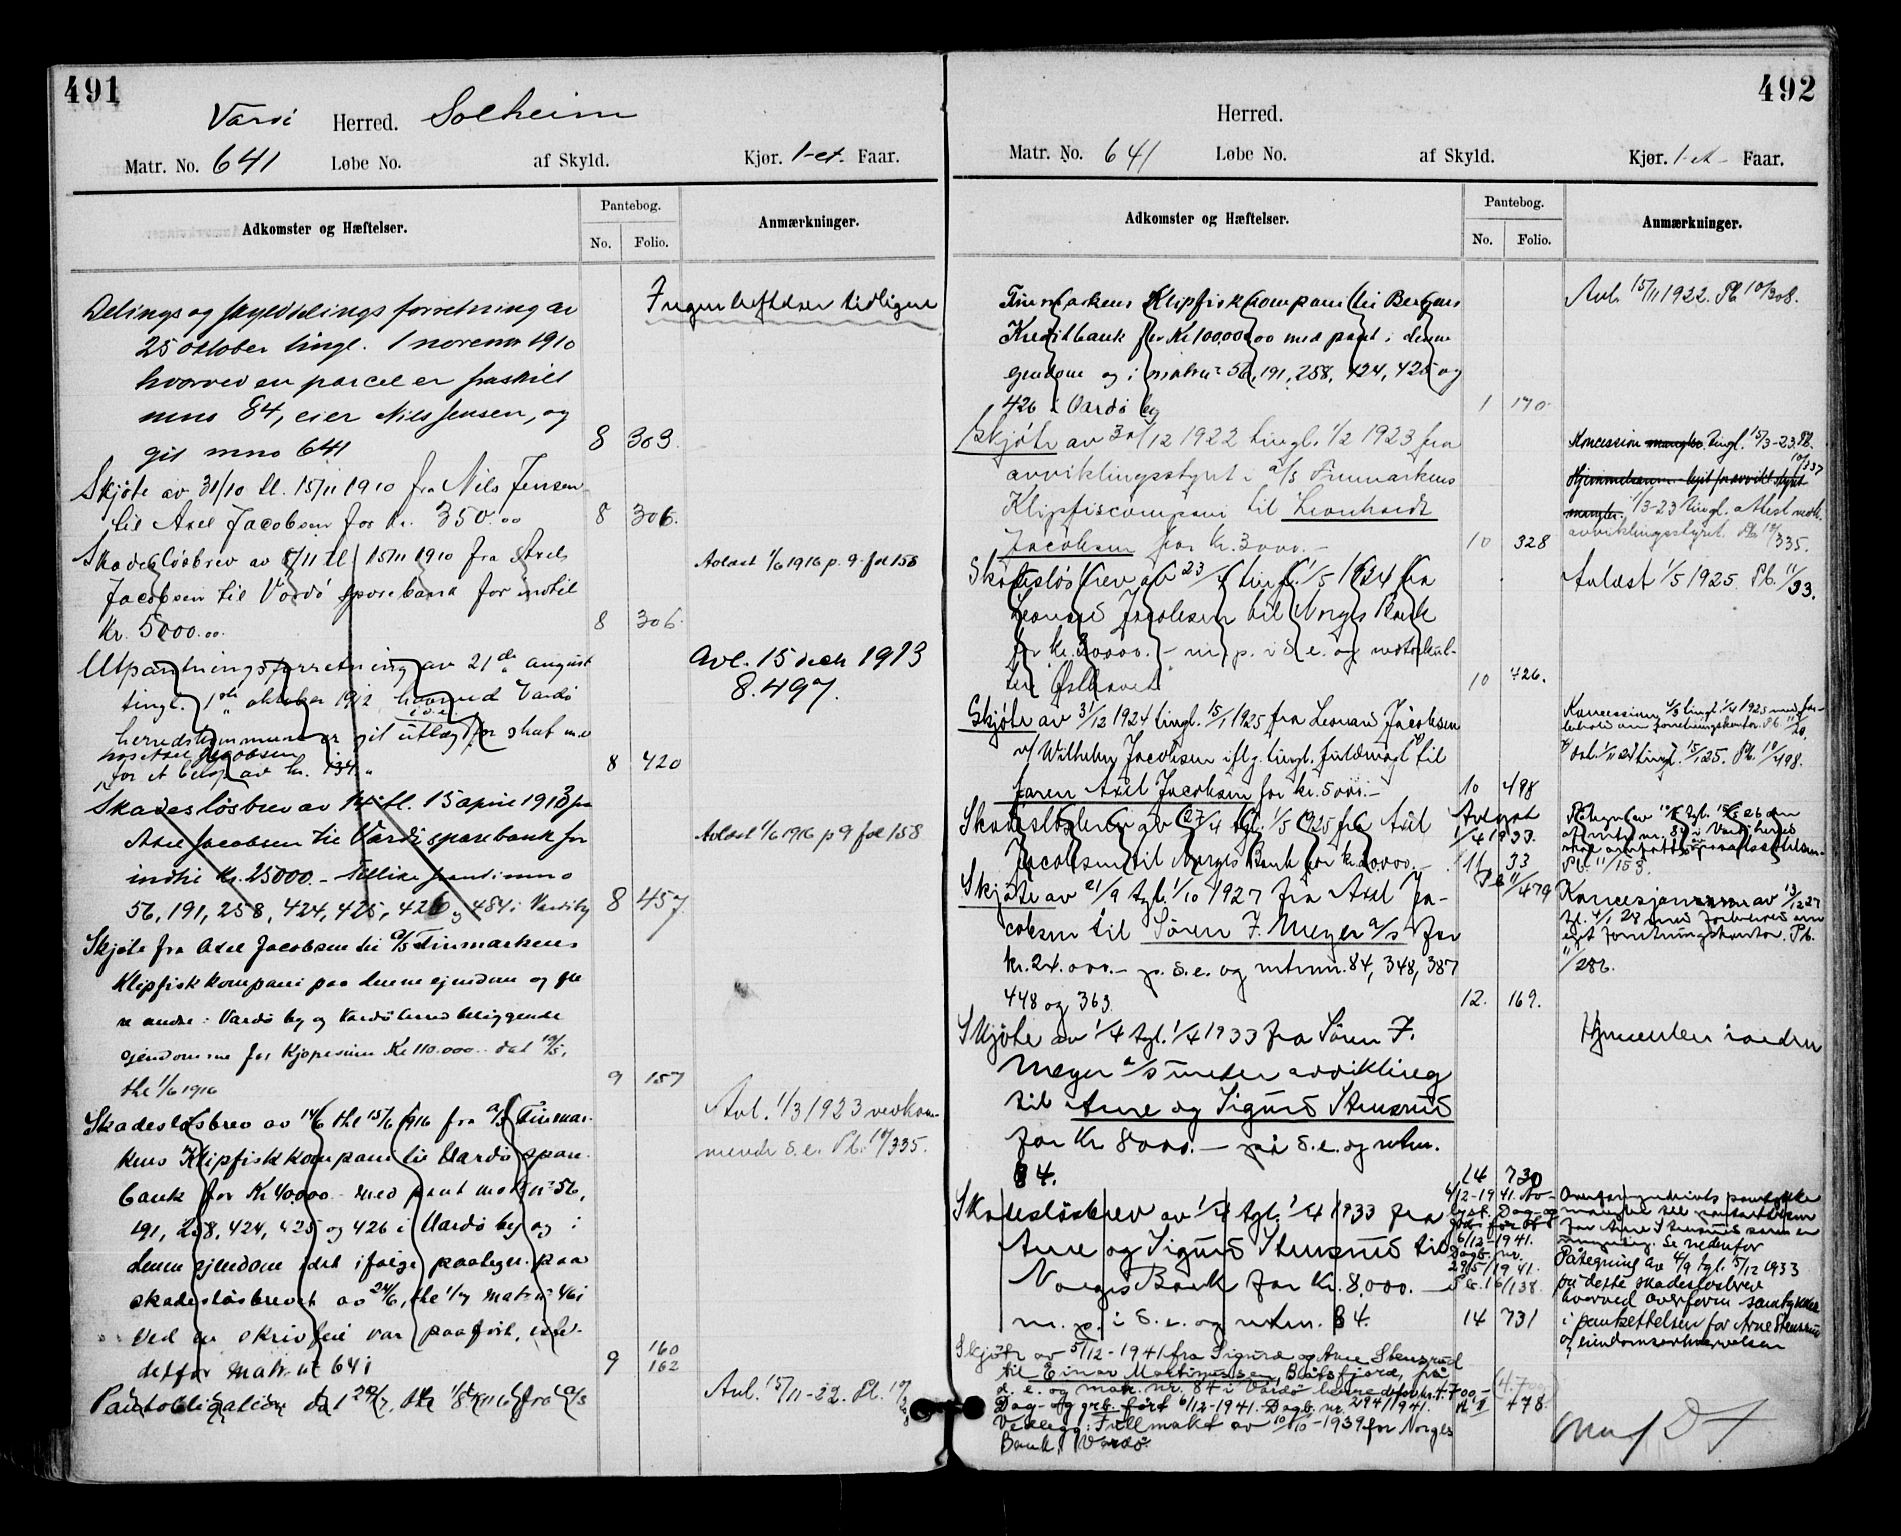 491
Vardö Herred. Solheim
Matr. No. 641 Løbe No. af Skyld. Kjør. 1-et. Faar.
Adkomster og Hæftelser.
Pantebog.
No. Folio.
Anmærkninger.
Delings og skylddelings forretning av
25 oktober tingl. 1 novemr 1910
hvorved en parcel er fraskilt
mno 84, eier Nils Jensen, og
git mno 641 8 303.
Ingen heftelser tidligere
Skjøte av 31/10 tl. 15/11 1910 fra Nils Jensen
til Axel Jacobsen for kr. 350.00 8 306.
Skadesløsbrev av 5/11 tl 15/11 1910 fra Axel
Jacobsen til Vardö sparebank for indtil
Kr. 5000.00. 8 306.
Avlæst 1/6 1916 p. 9. fol 158
Utpantningsforretning av 21de august
tingl. 1ste oktober 1912 hvorved Vardö
herredskommune er git utlæg i d. e. for skat m.v
hos Axel Jacobsen
for et beløp av kr. 134.„ 8 420
Avl. 15 decb 1913
8.497.
Skadesløsbrev av 14 tl. 15 april 1913 fra
Axel Jacobsen til Vardö sparebank for
indtil Kr. 25000.- Tillike pant i mno
56, 191, 258, 424, 425, 426 og 484 i Vardö by 8 457.
Avlæst 1/6 1916 p 9 fol 158
Skjøte fra Axel Jacobsen til A/S Finmarkens
Klipfiskkompani paa denne ejendom og fle
re andre i Vardö by og Vardö herred beliggende
ejendomme for Kjøpesum Kr 110.000.- dat 19/5,
thl 1/6 1916 9 157
Skadesløsbrev av 14/6 thl 15/6 1916 fra A/S Finmar-
kens Klipfiskkompani til Vardö spare-
bank for Kr 40000.- med pant matr nr 56,
191, 258, 424, 425 og 426 i Vardö by og i
denne ejendom idet ifølge paategn. paa
skadesløsbrevet av 24/6, thl 1/7 matr nr 46 i
ved en skrivfeil var paaført, iste-
detfor matr. nr 641 9 160
162
Avl. 1/3 1923 vedkom-
mende d.e. Pb. 10/335.
Pantobligation dat 20/7, thl 1/8 1916 fra A/S
Avl. 15/11-22. Pb. 10/308
492
Herred.
Matr. No. 641 Løbe No. af Skyld. Kjør. 1-et- Faar.
Adkomster og Hæftelser.
Pantebog.
No. Folio.
Anmærkninger.
Finmarkens Klipfiskkompani til Bergens
Kreditbank for Kr 100.000.00 med pant i denne
ejendom og i matr nr 56, 191, 258, 424, 425 og
426 i Vardö by 1 170.
Avl. 15/11 1922. Pb 10/308.
Skjøte av 30/12 1922 tingl. 1/2 1923 fra
avviklingsstyret i A/S Finmarkens
Klipfiscompani til Leonhardt
Jacobsen for kr. 3000.- 10 328
Koncession mangler. tingl. 15/3-23. Pb.
10/337
mangler. 1/3-23 tingl. attest vedk.
avviklingsstyret. Pb 10/335.
Skadesløsbrev av 23/4 tingl. 1/5 1924 fra
Leonard Jacobsen til Norges Bank
for kr. 20000.- m. p. i d. e. og motorkut-
ter Østhavet. 10 426.
Avlæst 1/5 1925. Pb. 11/33.
Skjøte av 31/12 1924 tingl. 15/1 1925 fra Leonard Jacobsen
v/ Wilhelm Jacobsen iflg. tingl. fuldmagt til
faren Axel Jacobsen for kr. 5000.- 10 498
Skadesløsbrev av 27/4 tgl. 1/5 1925 fra Axel
Jacobsen til Norges Bank for kr. 20000.- 11 33
Avlyst
1/4 1933.
Pb 11/479
Skjøte av 21/9 tgl. 1/10 1927 fra Axel Ja-
cobsen til Søren F. Meyer A/S for
kr. 24.000.- p. d. e. og mtrnr. 84, 348, 387
448 og 363 12. 169.
Koncesjon av 13/12 27
tgl. 4/1 28 med forbehold om
eget forretningskontor. Pb.
11/286.
Skjøte av 1/4 tgl. 1/4 1933 fra Søren F.
Meyer A/S under avvikling
til Arne og Sigurd Stensrud
for Kr 8000.- på d.e. og mtrn.
84. 14 730
Hjemmelen i orden
Skadesløsbrev av 1/4 tgl. 1/4 1933 fra
Arne og Sigurd Stensrud til
Norges Bank for Kr. 8,000.-
m. p. i d. e. og mtrn. 84. 14 731
6/12-1941. Av-
lyst. Dag- og
6/12-1941.
Dagb. nr.
2915/1941.
Pb. 16/138.
Påtegning av 4/9 tgl. 5/12 1933
på dette skadesløsbrev
hvorved overform. samtykker
i pantsettelsen for Arne Stensrud
og eiendomserhvervelsen
Skjøte av 5/12-1941 fra Sigurd og Arne Stensrud
til Einar Martinussen, Båtsfjord, på
d. e. og matr. nr. 84 i Vardö herred for kr. 4.700,-
Dag- og grb. ført 6/12-1941. Dagb. nr. 2941/1941. 478.
Vedlegg: Fullmakt av 10/10-1939 for Norges
Bank, Vardö.